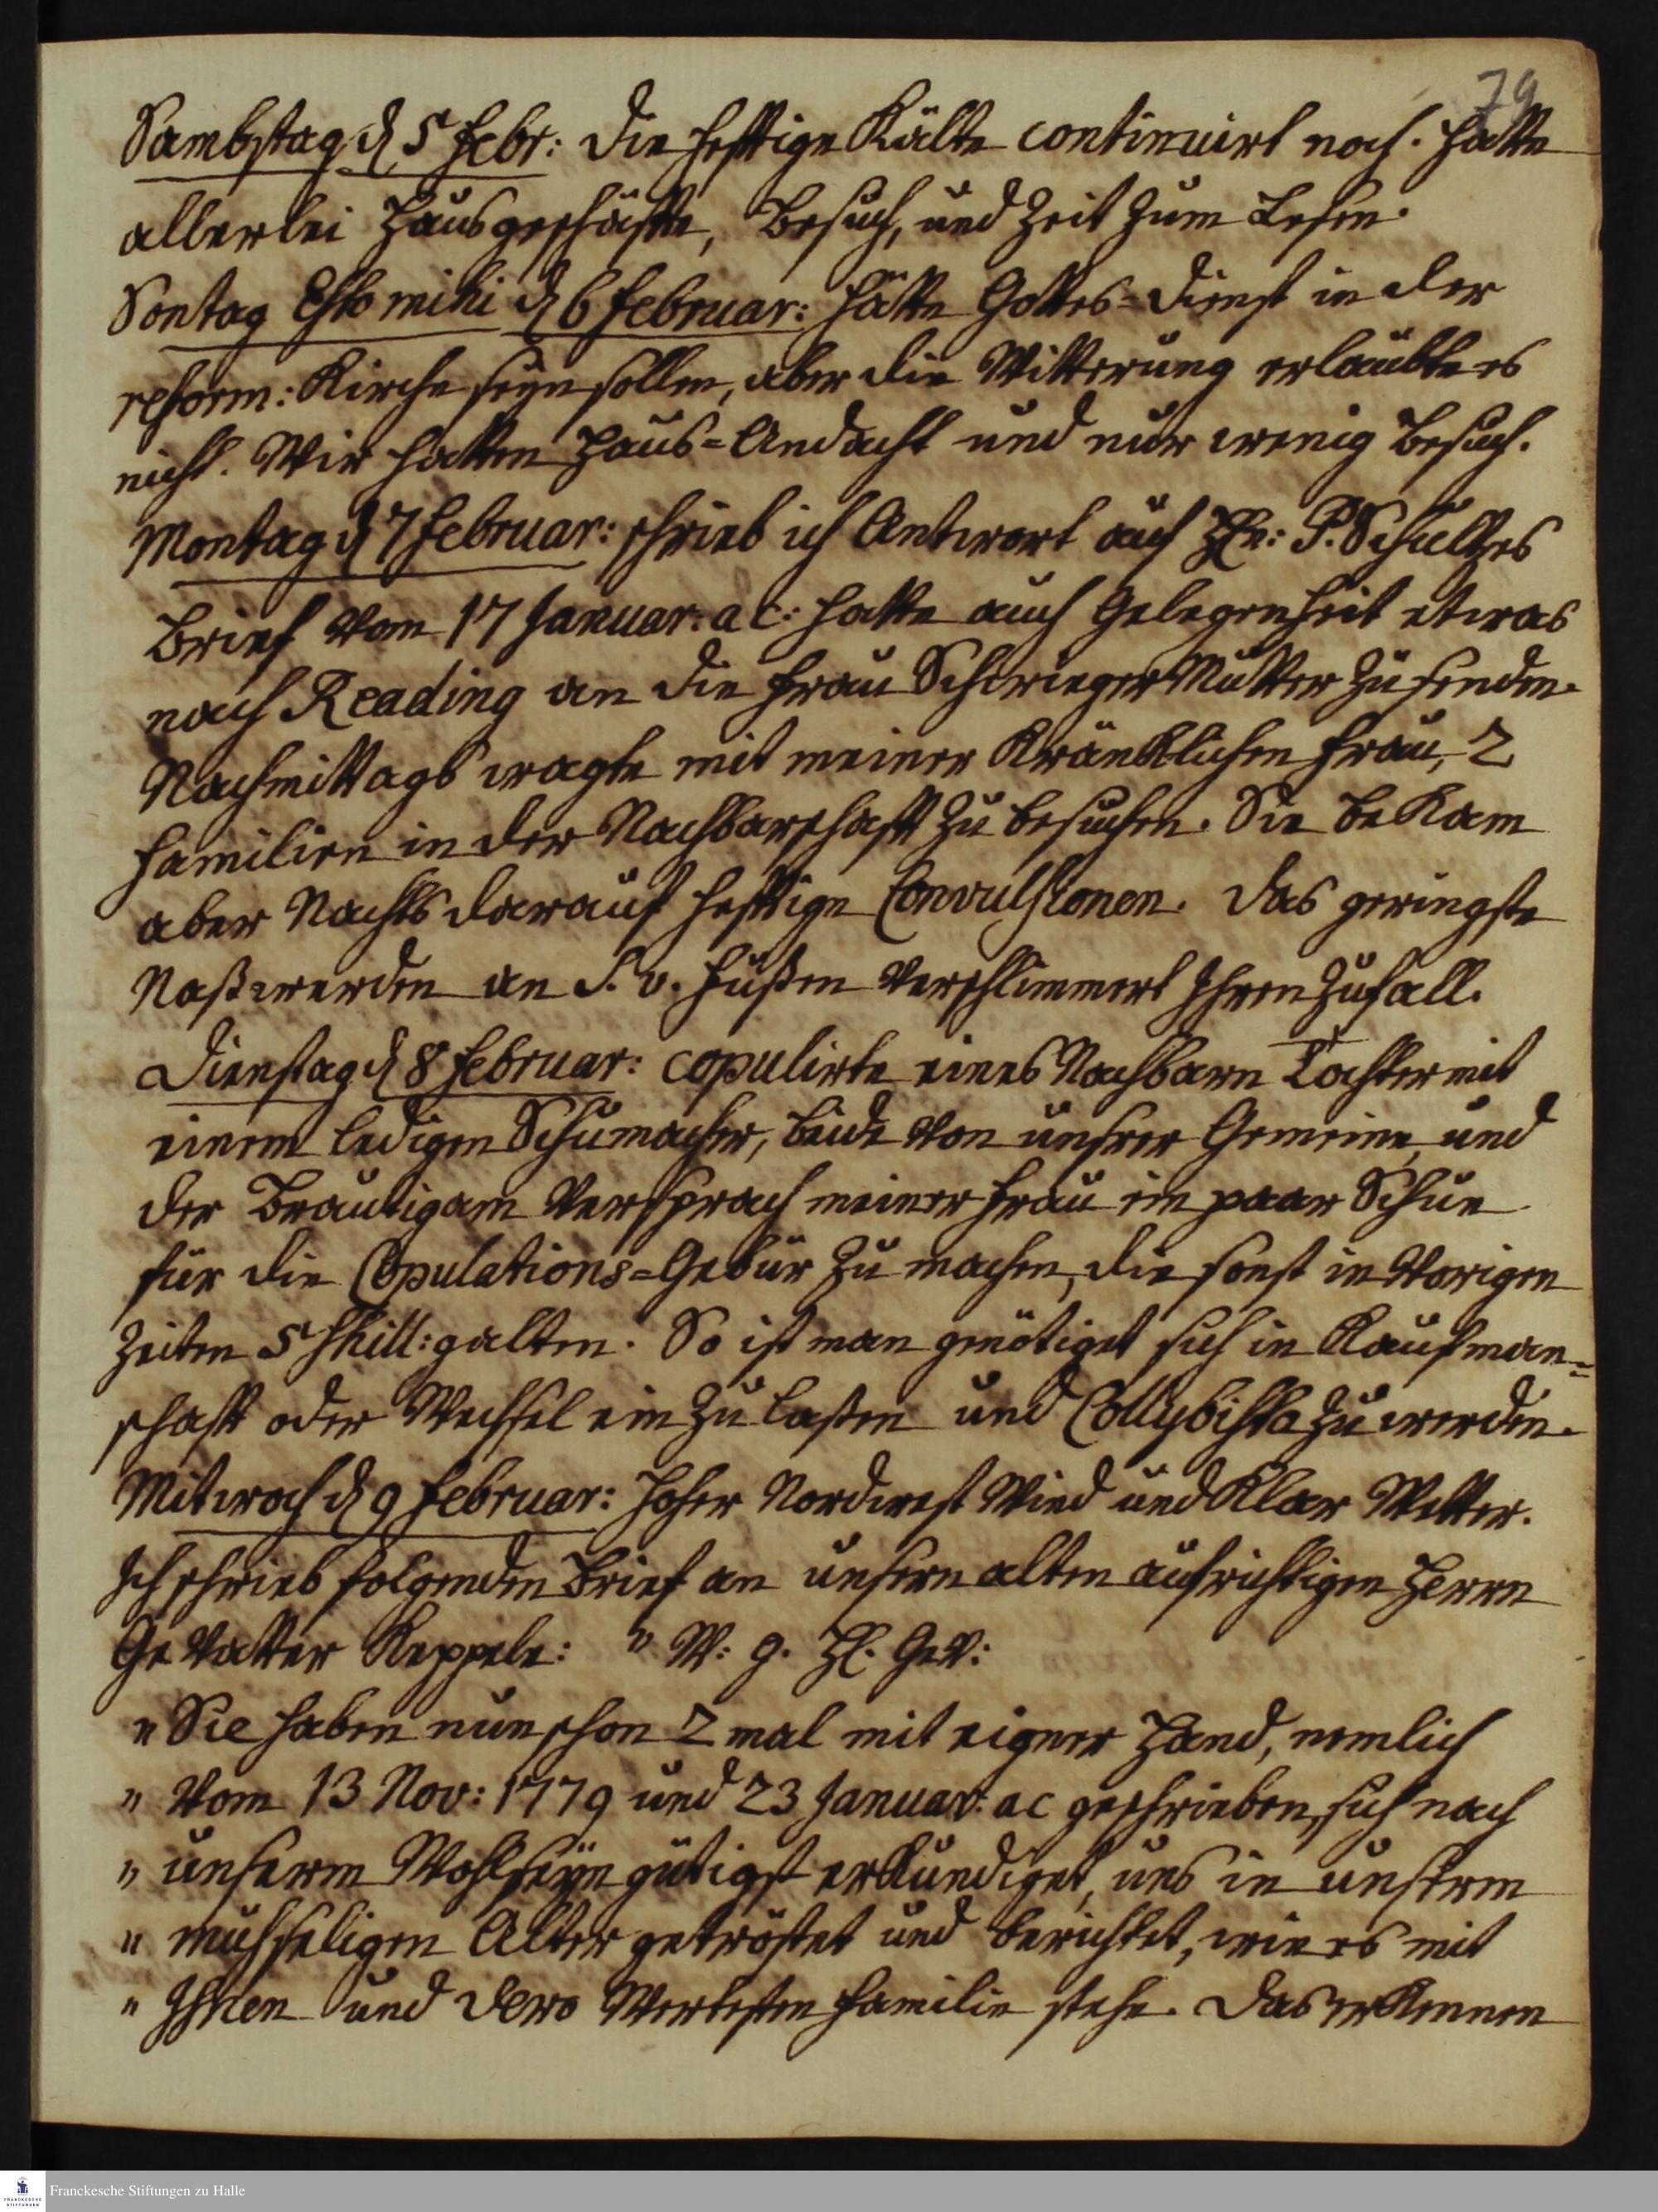 79
Sambstag d 5 Febr: die hefftige Kälte continuirt noch. hatte
allerlei Hausgeschäfte, Besuch, und Zeit zum Lesen.
Sontag Esto mihi d 6 Februar: hätte Gottes-dienst in der
reform: Kirche seyn sollen, aber die Witterung erlaubte es
nicht. Wir hatten Haus-Andacht und nur wenig Besuch.
Montag d 7 Februar: schrieb ich Antwort auf HEn: P. Schultzes
Brief vom 17 Januar: a c: hatte auch Gelegenheit etwas
nach Reading an die Frau Schwieger Mutter zu senden.
Nachmittags wagte mit meiner Kränklichen Frau, 2
Familien in der Nachbarschafft zu besuchen. Sie bekam
aber Nachts darauf hefftige Convulsionen. Das geringste
Naßwerden an S. v. Füßen verschlimmert Ihren Zufall.
Dienstag d 8 Februar: copulirte eines Nachbarn Tochter mit
einem ledigen Schumacher, beide von unsrer Gemeine, und
der Bräutigam versprach meiner Frau ein paar Schue
für die Copulations-Gebür zu machen, die sonst in vorigen
Zeiten 5 Shill: galten. So ist man genötiget sich in Kaufman=
schafft oder Wechsel ein zu laßen und Collybista zu werden.
Mitwoch d 9 Februar: hoher Nordwest Wind und Klar Wetter.
Ich schrieb folgenden Brief an unsern alten aufrichtigen Herrn
Gevatter Keppele: " W: g. H. Gev:
" Sie haben nun schon 2 mal mit eigner Hand, nemlich
" vom 13 Nov: 1779 und 23 Januar: ac geschrieben, sich nach
" unserm Wohlseyn gütigst erkundiget, uns in unserm
" mühseligen Alter getröstet und berichtet, wie es mit
" Ihnen und dero Werthesten Familie stehe. Das erkennen
Franckesche Stiftungen zu Halle
FRANCKESCHE STIFTUNGEN